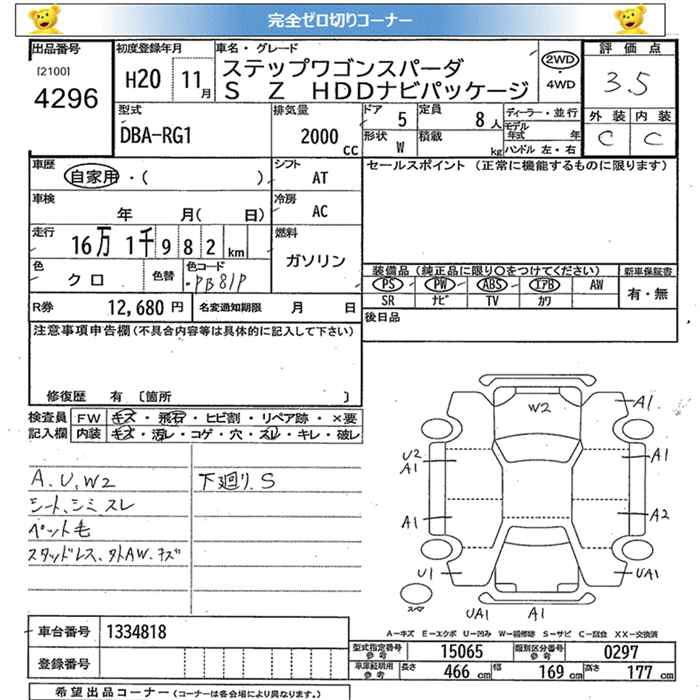 完全ゼロ切りコーナー
出品番号
[2100]
4296
初度登録年月
H20 11月
車名・グレード
ステップワゴンスパーダ
S Z HDDナビパッケージ
2WD
・
4WD
評価点
3.5
外装 内装
C C
型式
DBA-RG1
排気量
2000 cc
ドア 5
定員 8人
形状 W
積載 kg
ディーラー・並行
モデル年式 年
ハンドル 左・右
車歴
自家用・( )
シフト
AT
セールスポイント (正常に機能するものに限ります)
車検
年 月( 日)
冷房
AC
走行
16万 1千 9 8 2 km
燃料
ガソリン
色
クロ
色替
色コード
PB81P
装備品 (純正品に限り○をつけてください)
新車保証書
PS PW ABS エアB AW
SR ナビ TV カワ
有・無
R券 12,680円
名変通知期限 月 日
後日品
注意事項申告欄(不具合内容等は具体的に記入して下さい)
修復歴 有 〔箇所 〕
検査員 FW キズ・飛石・ヒビ割・リペア跡・×要
記入欄 内装 キズ・汚レ・コゲ・穴・スレ・キレ・破レ
A.U.W2
下廻り.S
シート、シミ、スレ
ペット毛
スタッドレス、タトAW.キズ
W2
A1
U2
A1
A1
A1
A2
U1
UA1
UA1
A1
スペア
A−キズ E−エクボ U−凹み W−補修跡 S−サビ C−腐食 XX−交換済
車台番号 1334818
登録番号
型式指定番号
参考
15065
類別区分番号
参考
0297
車庫証明用
参考
長さ 466 cm
幅 169 cm
高さ 177 cm
希望出品コーナー (コーナーは各会場により異なります。)